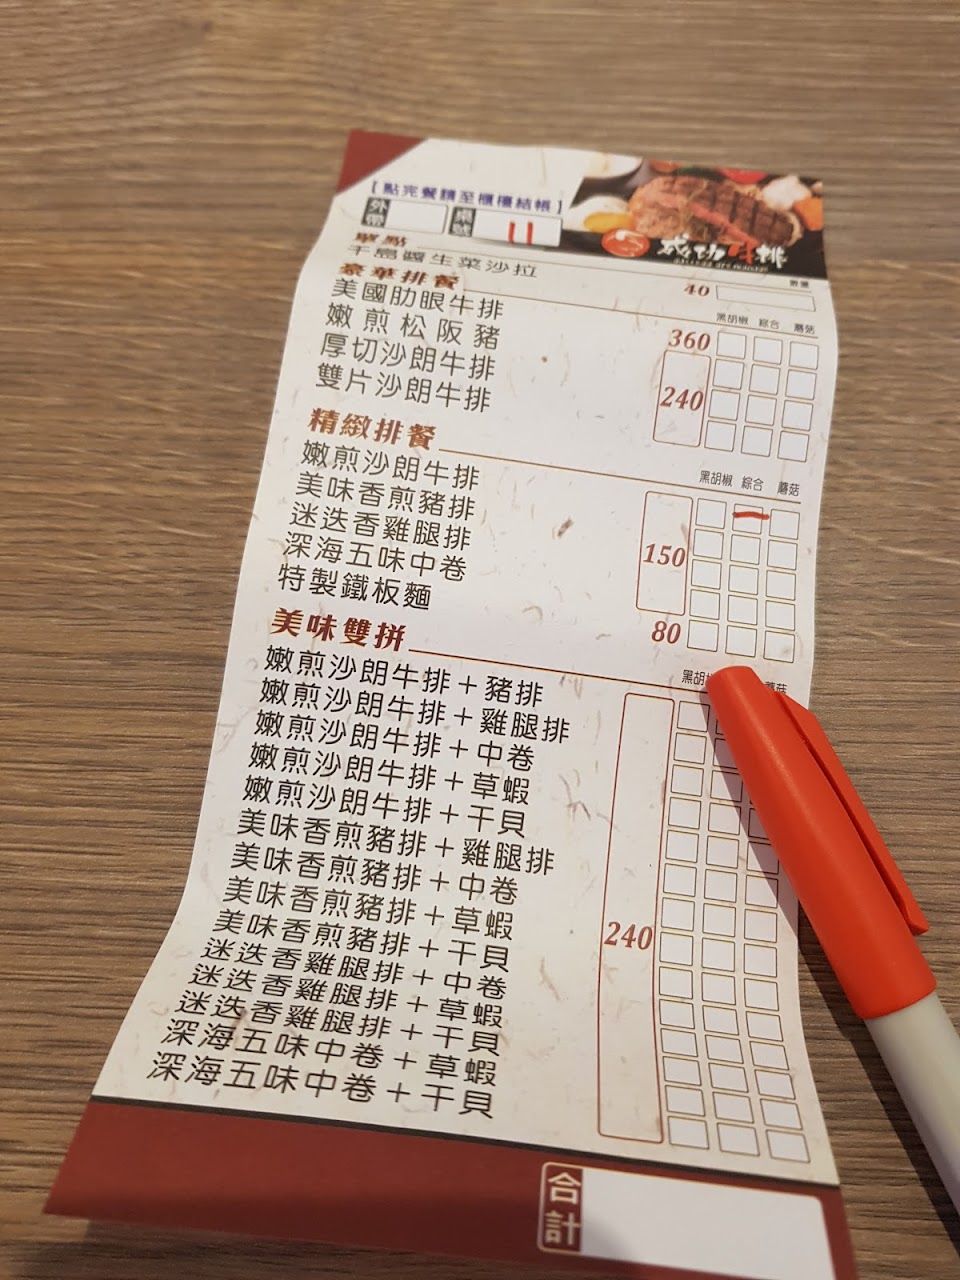 [ 點完餐請至櫃檯結帳 ]
外帶 桌號 11
成功牛排
單點 數量
千島醬生菜沙拉 40
豪華排餐 黑胡椒 綜合 蘑菇
美國肋眼牛排 360
嫩煎松阪豬
厚切沙朗牛排 240
雙片沙朗牛排
精緻排餐 黑胡椒 綜合 蘑菇
嫩煎沙朗牛排
美味香煎豬排
迷迭香雞腿排 150
深海五味中卷
特製鐵板麵 80
美味雙拼 黑胡 蘑菇
嫩煎沙朗牛排+豬排
嫩煎沙朗牛排+雞腿排
嫩煎沙朗牛排+中卷
嫩煎沙朗牛排+草蝦
嫩煎沙朗牛排+干貝
美味香煎豬排+雞腿排
美味香煎豬排+中卷
美味香煎豬排+草蝦 240
美味香煎豬排+干貝
迷迭香雞腿排+中卷
迷迭香雞腿排+草蝦
迷迭香雞腿排+干貝
深海五味中卷+草蝦
深海五味中卷+干貝
合計